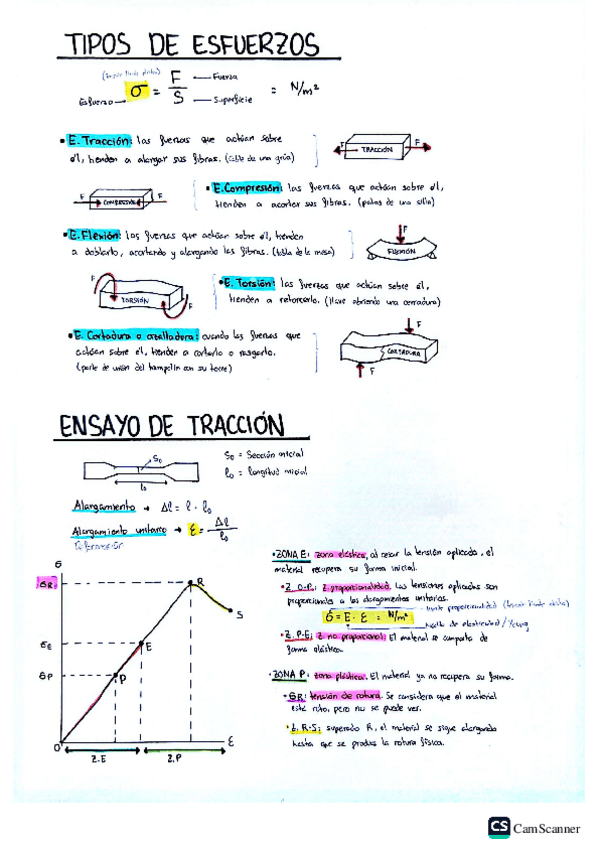 TIPOS DE ESFUERZOS
Esfuerzo → σ = F / S = N/m²
Fuerza
Superficie
• E. Tracción: las fuerzas que actúan sobre
él, tienden a alargar sus fibras. (cable de una grúa)
F TRACCIÓN F
F COMPRESIÓN F
• E. Compresión: las fuerzas que actúan sobre él,
tienden a acortar sus fibras. (patas de una silla)
• E. Flexión: las fuerzas que actúan sobre él, tienden
a doblarlo, acortando y alargando las fibras. (tabla de la mesa)
F
FLEXIÓN
F TORSIÓN F
• E. Torsión: las fuerzas que actúan sobre él,
tienden a retorcerlo. (llave abriendo una cerradura)
• E. Cortadura o cizalladura: cuando las fuerzas que
actúan sobre él, tienden a cortarlo o rasgarlo.
(parte de unión del trampolín con su torre)
F
CORTADURA
F
ENSAYO DE TRACCIÓN
S₀
l₀
S₀ = Sección inicial
l₀ = longitud inicial
Alargamiento → Δl = l - l₀
Alargamiento unitario → ε = Δl / l₀
• ZONA E: zona elástica, al cesar la tensión aplicada, el
material recupera su forma inicial.
• Z. O-P: Z proporcionalidad. Las tensiones aplicadas son
proporcionales a los alargamientos unitarios.
σ = E · ε = N/m²
• Z. P-E: Z no proporcional: El material se comporta de
forma elástica.
• ZONA P: zona plástica. El material ya no recupera su forma.
• σR: tensión de rotura. Se considera que el material
está roto, pero no se puede ver.
• Z. R-S: superado R, el material se sigue alargando
hasta que se produce la rotura física.
σ
σR
σE
σP
R
S
E
P
O
ε
Z.E
Z.P
CS CamScanner